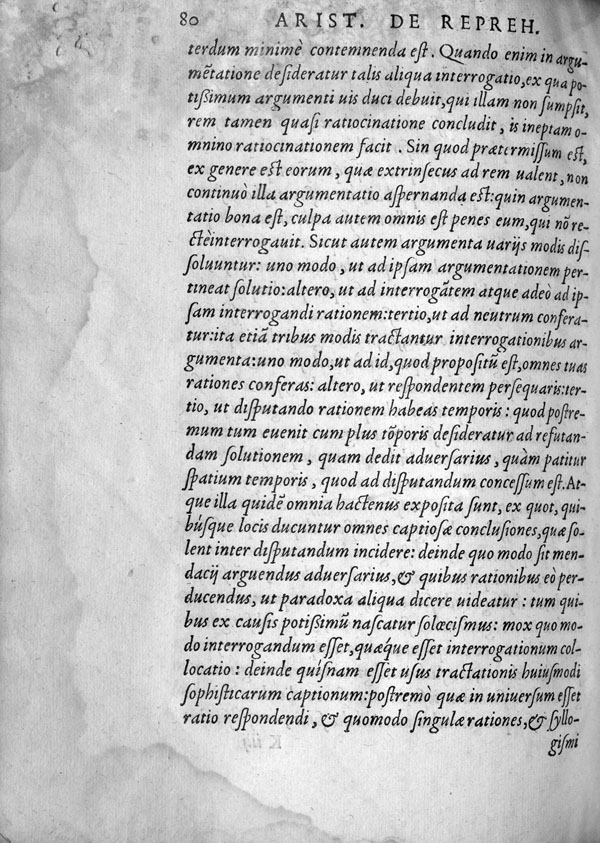 80 ARIST. DE REPREH.
terdum minimè contemnenda est. Quando enim in argu-
mẽtatione desideratur talis aliqua interrogatio, ex qua po-
tißimum argumenti uis duci debuit, qui illam non sumpsit,
rem tamen quasi ratiocinatione concludit, is ineptam o-
mnino ratiocinationem facit. Sin quod prætermissum est,
ex genere est eorum, quæ extrinsecus ad rem ualent, non
continuò illa argumentatio aspernanda est: quin argumen-
tatio bona est, culpa autem omnis est penes eum, qui nõ re-
ctè interrogauit. Sicut autem argumenta uarijs modis dis-
soluuntur: uno modo, ut ad ipsam argumentationem per-
tineat solutio: altero, ut ad interrogãtem atque adeò ad ip-
sam interrogandi rationem: tertio, ut ad neutrum confera-
tur: ita etiã tribus modis tractantur interrogationibus ar-
gumenta: uno modo, ut ad id, quod propositũ est, omnes tuas
rationes conferas: altero, ut respondentem persequaris: ter-
tio, ut disputando rationem habeas temporis: quod postre-
mum tum euenit cum plus tẽporis desideratur ad refutan-
dam solutionem, quam dedit aduersarius, quàm patitur
spatium temporis, quod ad disputandum concessum est. At-
que illa quidẽ omnia hactenus exposita sunt, ex quot, qui-
búsque locis ducuntur omnes captiosæ conclusiones, quæ so-
lent inter disputandum incidere: deinde quo modo sit men-
dacij arguendus aduersarius, & quibus rationibus eò per-
ducendus, ut paradoxa aliqua dicere uideatur: tum qui-
bus ex causis potißimũ nascatur solœcismus: mox quo mo-
do interrogandum esset, quæque esset interrogationum col-
locatio: deinde quísnam esset usus tractationis huiusmodi
sophisticarum captionum: postremò quæ in uniuersum esset
ratio respondendi, & quomodo singulæ rationes, & syllo-
gismi